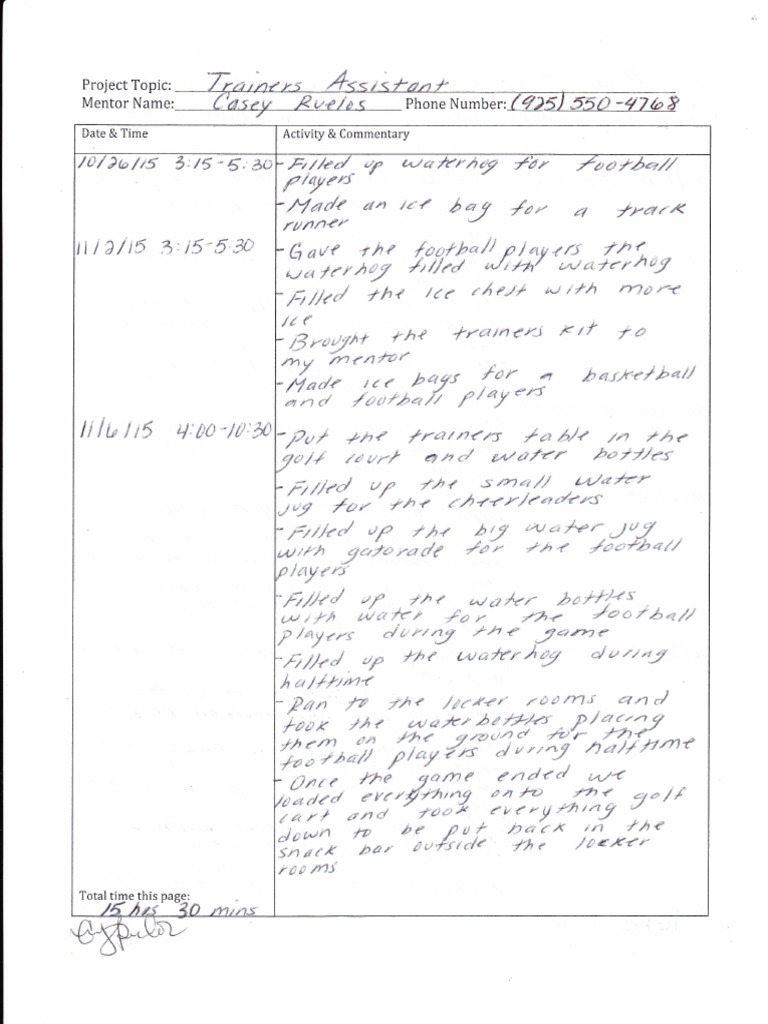 Project Topic: Trainers Assistant
Mentor Name: Casey Ruelos Phone Number: (925) 550-4768
Date & Time Activity & Commentary
10/26/15 3:15-5:30 - Filled up waterhog for football
players
- Made an ice bag for a track
runner
11/2/15 3:15-5:30 - Gave the football players the
waterhog filled with waterhog
- Filled the ice chest with more
ice
- Brought the trainers kit to
my mentor
- Made ice bags for a basketball
and football players
11/6/15 4:00-10:30 - Put the trainers table in the
golf court and water bottles
- Filled up the small water
jug for the cheerleaders
- Filled up the big water jug
with gatorade for the football
players
- Filled up the water bottles
with water for the football
players during the game
- Filled up the waterhog during
halftime
- Ran to the locker rooms and
took the waterbottles placing
them on the ground for the
football players during halftime
- Once the game ended we
loaded everything onto the golf
cart and took everything
down to be put back in the
snack bar outside the locker
rooms
Total time this page:
15 hrs 30 mins